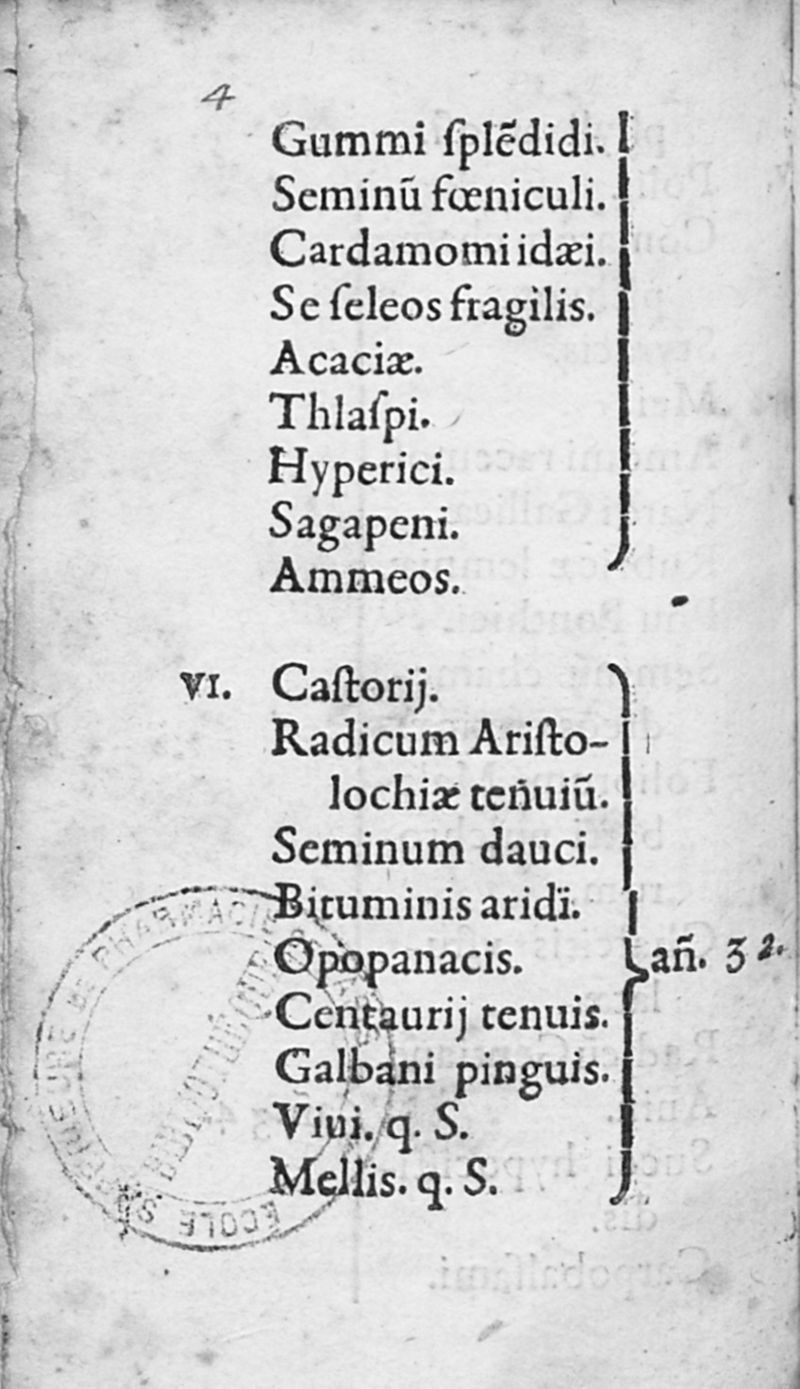 4
Gummi ſplẽdidi.
Seminũ fœniculi.
Cardamomi idæi.
Se ſeleos fragilis.
Acaciæ.
Thlaſpi.
Hyperici.
Sagapeni.
Ammeos.
VI. Caſtorij.
Radicum Ariſto-
lochiæ tenuiũ.
Seminum dauci.
Bituminis aridi.
Opopanacis. añ. ʒ 2.
Centaurij tenuis.
Galbani pinguis.
Viui. q. S.
Mellis. q. S.
BIBLIOTHÈQUE
ECOLE SUPERIEURE DE PHARMACIE